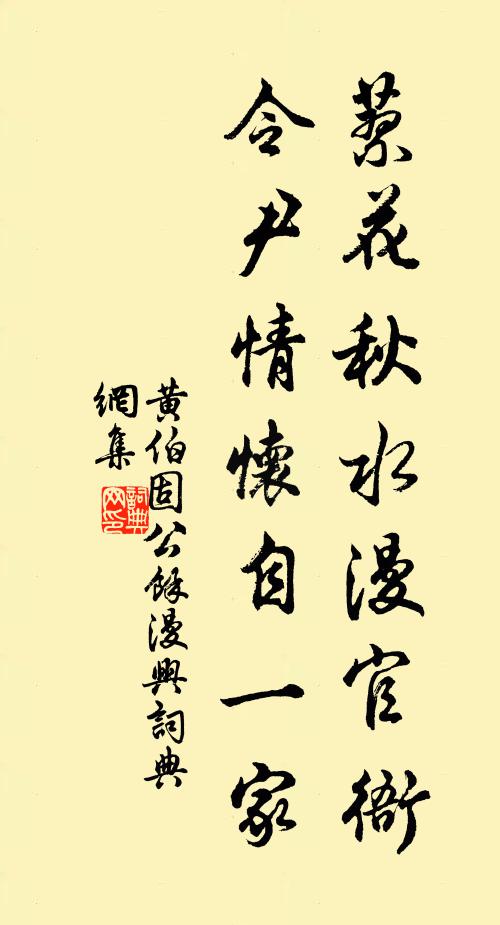 蓼花秋水漫官衙
令尹情懷自一家
黄伯固公餘漫興詞典
網集
詞典
网印